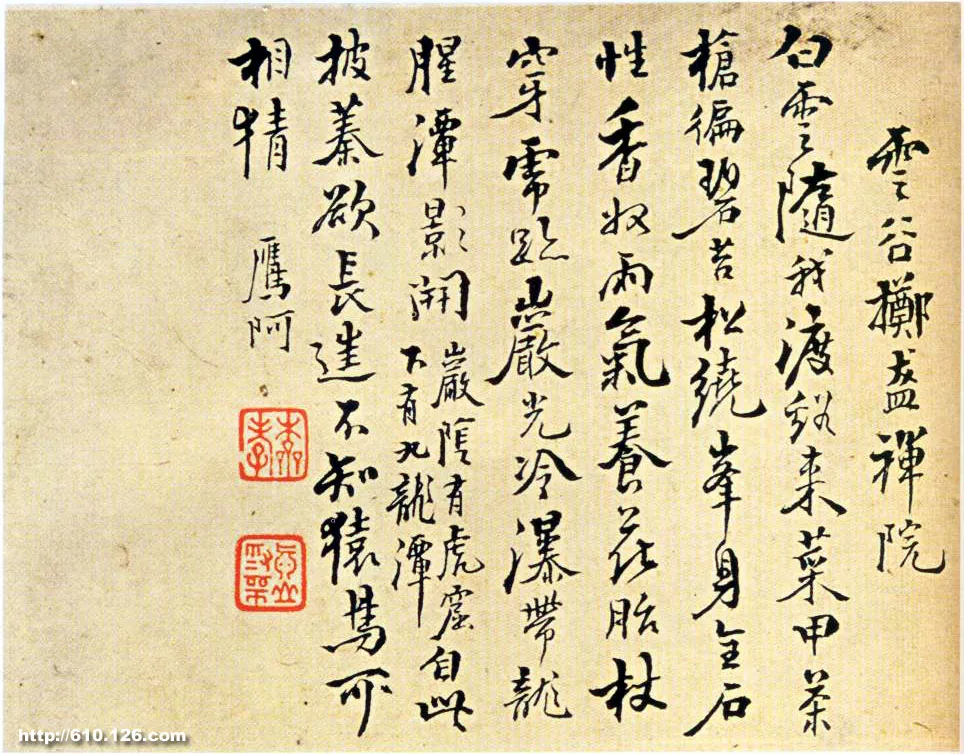 雲谷擲盋禪院
白雲隨我渡谿来菜甲茶
槍徧碧苔松繞峯身全石
性香收雨氣養花胎杖
穿虎跡巖光冷瀑帶龍
腥潭影開
巖陰有虎窟
下有九龍潭
自此
披蓁欲長進不知猿鳥可
相猜 鷹阿
本孝
http://610.126.com